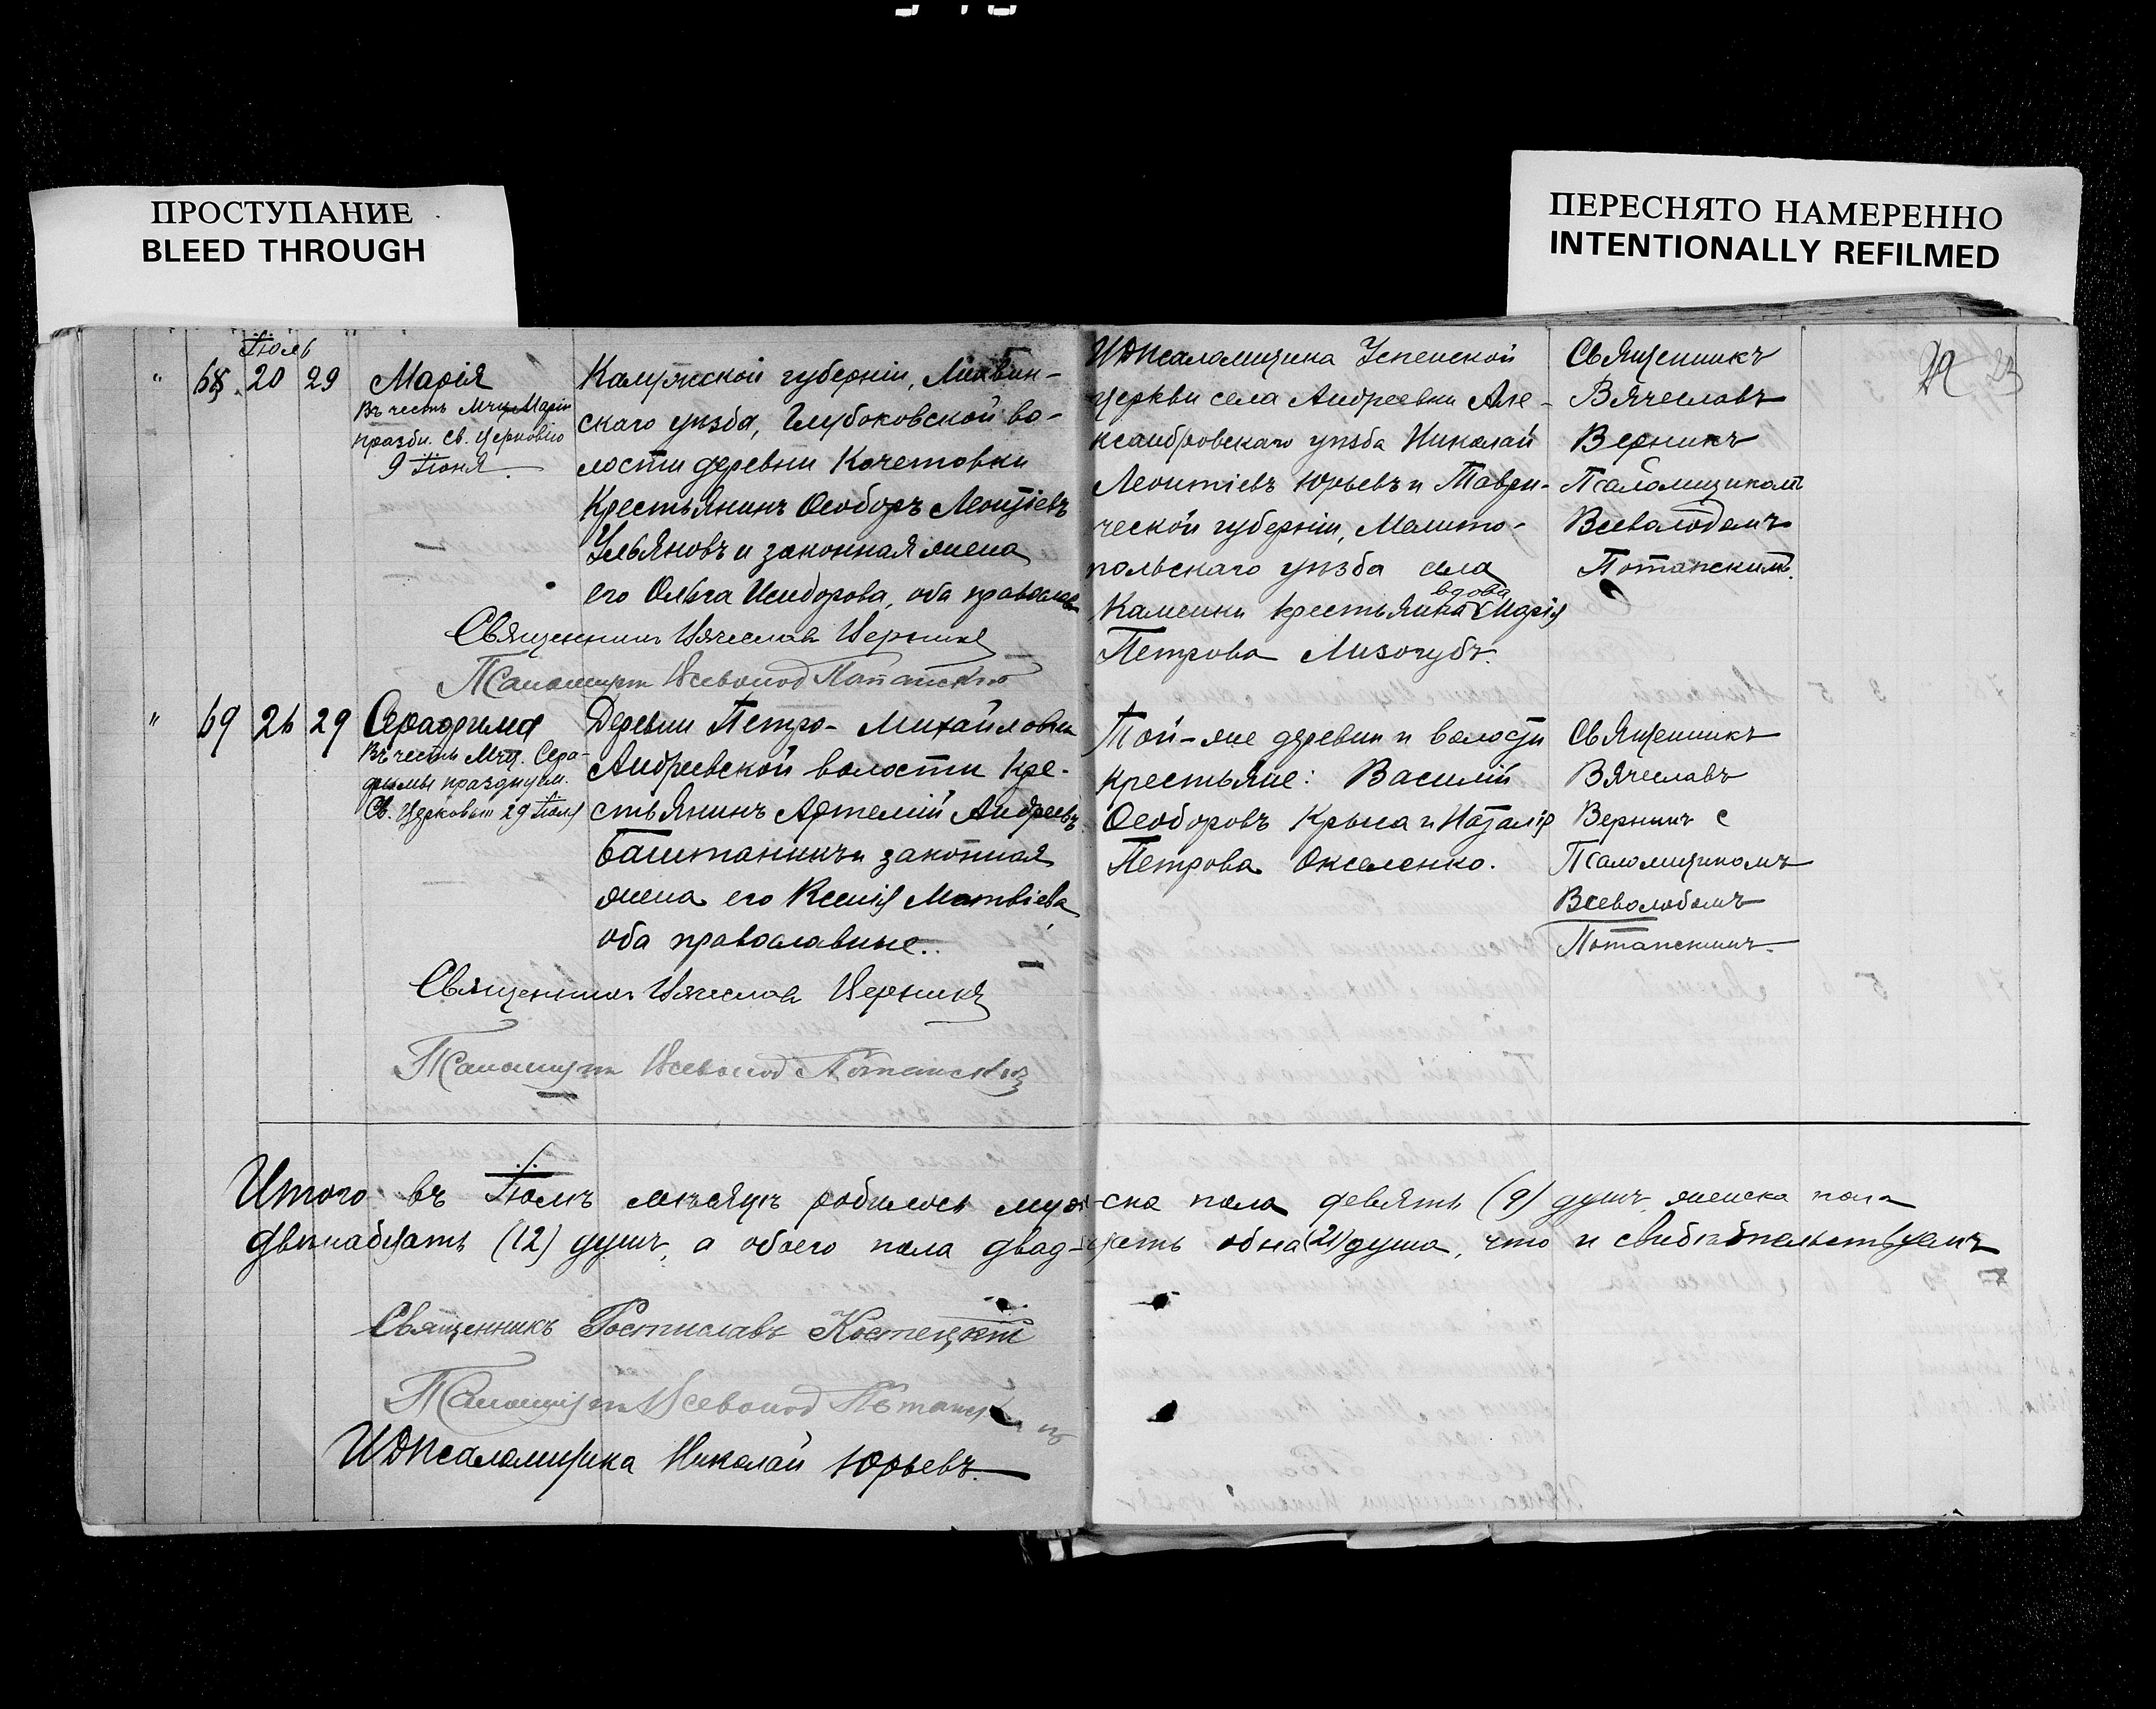 ПРОСТУПАНИЕ
BLEED THROUGH
ПЕРЕСНЯТО НАМЕРЕННО
INTENTIONALLY REFILMED
Іюль
" 68. 20 29
Марія
Въ честь Мчц. Маріи
праздн. Св. Церковію
9 Іюня.
Калужской губерніи, Лихвин-
скаго уѣзда, Глубоковской во-
лости деревни Кочетовки
Крестьянинъ Ѳеодоръ Леонтіевъ
Ульяновъ и законная жена
его Ольга Исидорова, оба православ
ИДПсаломщика Успенской
церкви села Андреевки Але-
ксандровскаго уѣзда Николай
Леонтіевъ Юрьевъ и Таври-
ческой губерніи, Мелито-
польскаго уѣзда села
вдова
Каменки крестьянка Марія
Петрова Лизогубъ.
Священникъ
Вячеславъ
Верникъ
Псаломщикомъ
Всеволодомъ
Потапскимъ.
22 23
Священникъ Вячеславъ Верникъ
Псаломщикъ Всеволод Потапскій
" 69 26 29
Серафима
Въ честь Мчц. Сера-
фимы празднуем.
Св. Церковью 29 Іюля
Деревни Петро-Михайловки
Андреевской волости кре-
стьянинъ Артемій Андреевъ
Баштаникъ и законная
жена его Ксенія Матвіева
оба православные.
Той-же деревни и волости
крестьяне: Василій
Ѳеодоровъ Крыса и Наталія
Петрова Окселенко.
Священникъ
Вячеславъ
Верникъ с
Псаломщикомъ
Всеволодомъ
Потапскимъ.
Священникъ Вячеславъ Верникъ
Псаломщикъ Всеволод Потапскій
Итого въ Іюлѣ мѣсяцѣ родилось муж-ска пола девять (9) душъ, женска пола
двѣнадцать (12) душъ, а обоего пола двад-цать одна (21) душа, что и свидѣтельствуемъ
Священникъ Ростиславъ Костецкій
Псаломщикъ Всеволод Потапскій
ИДПсаломщика Николай Юрьевъ.